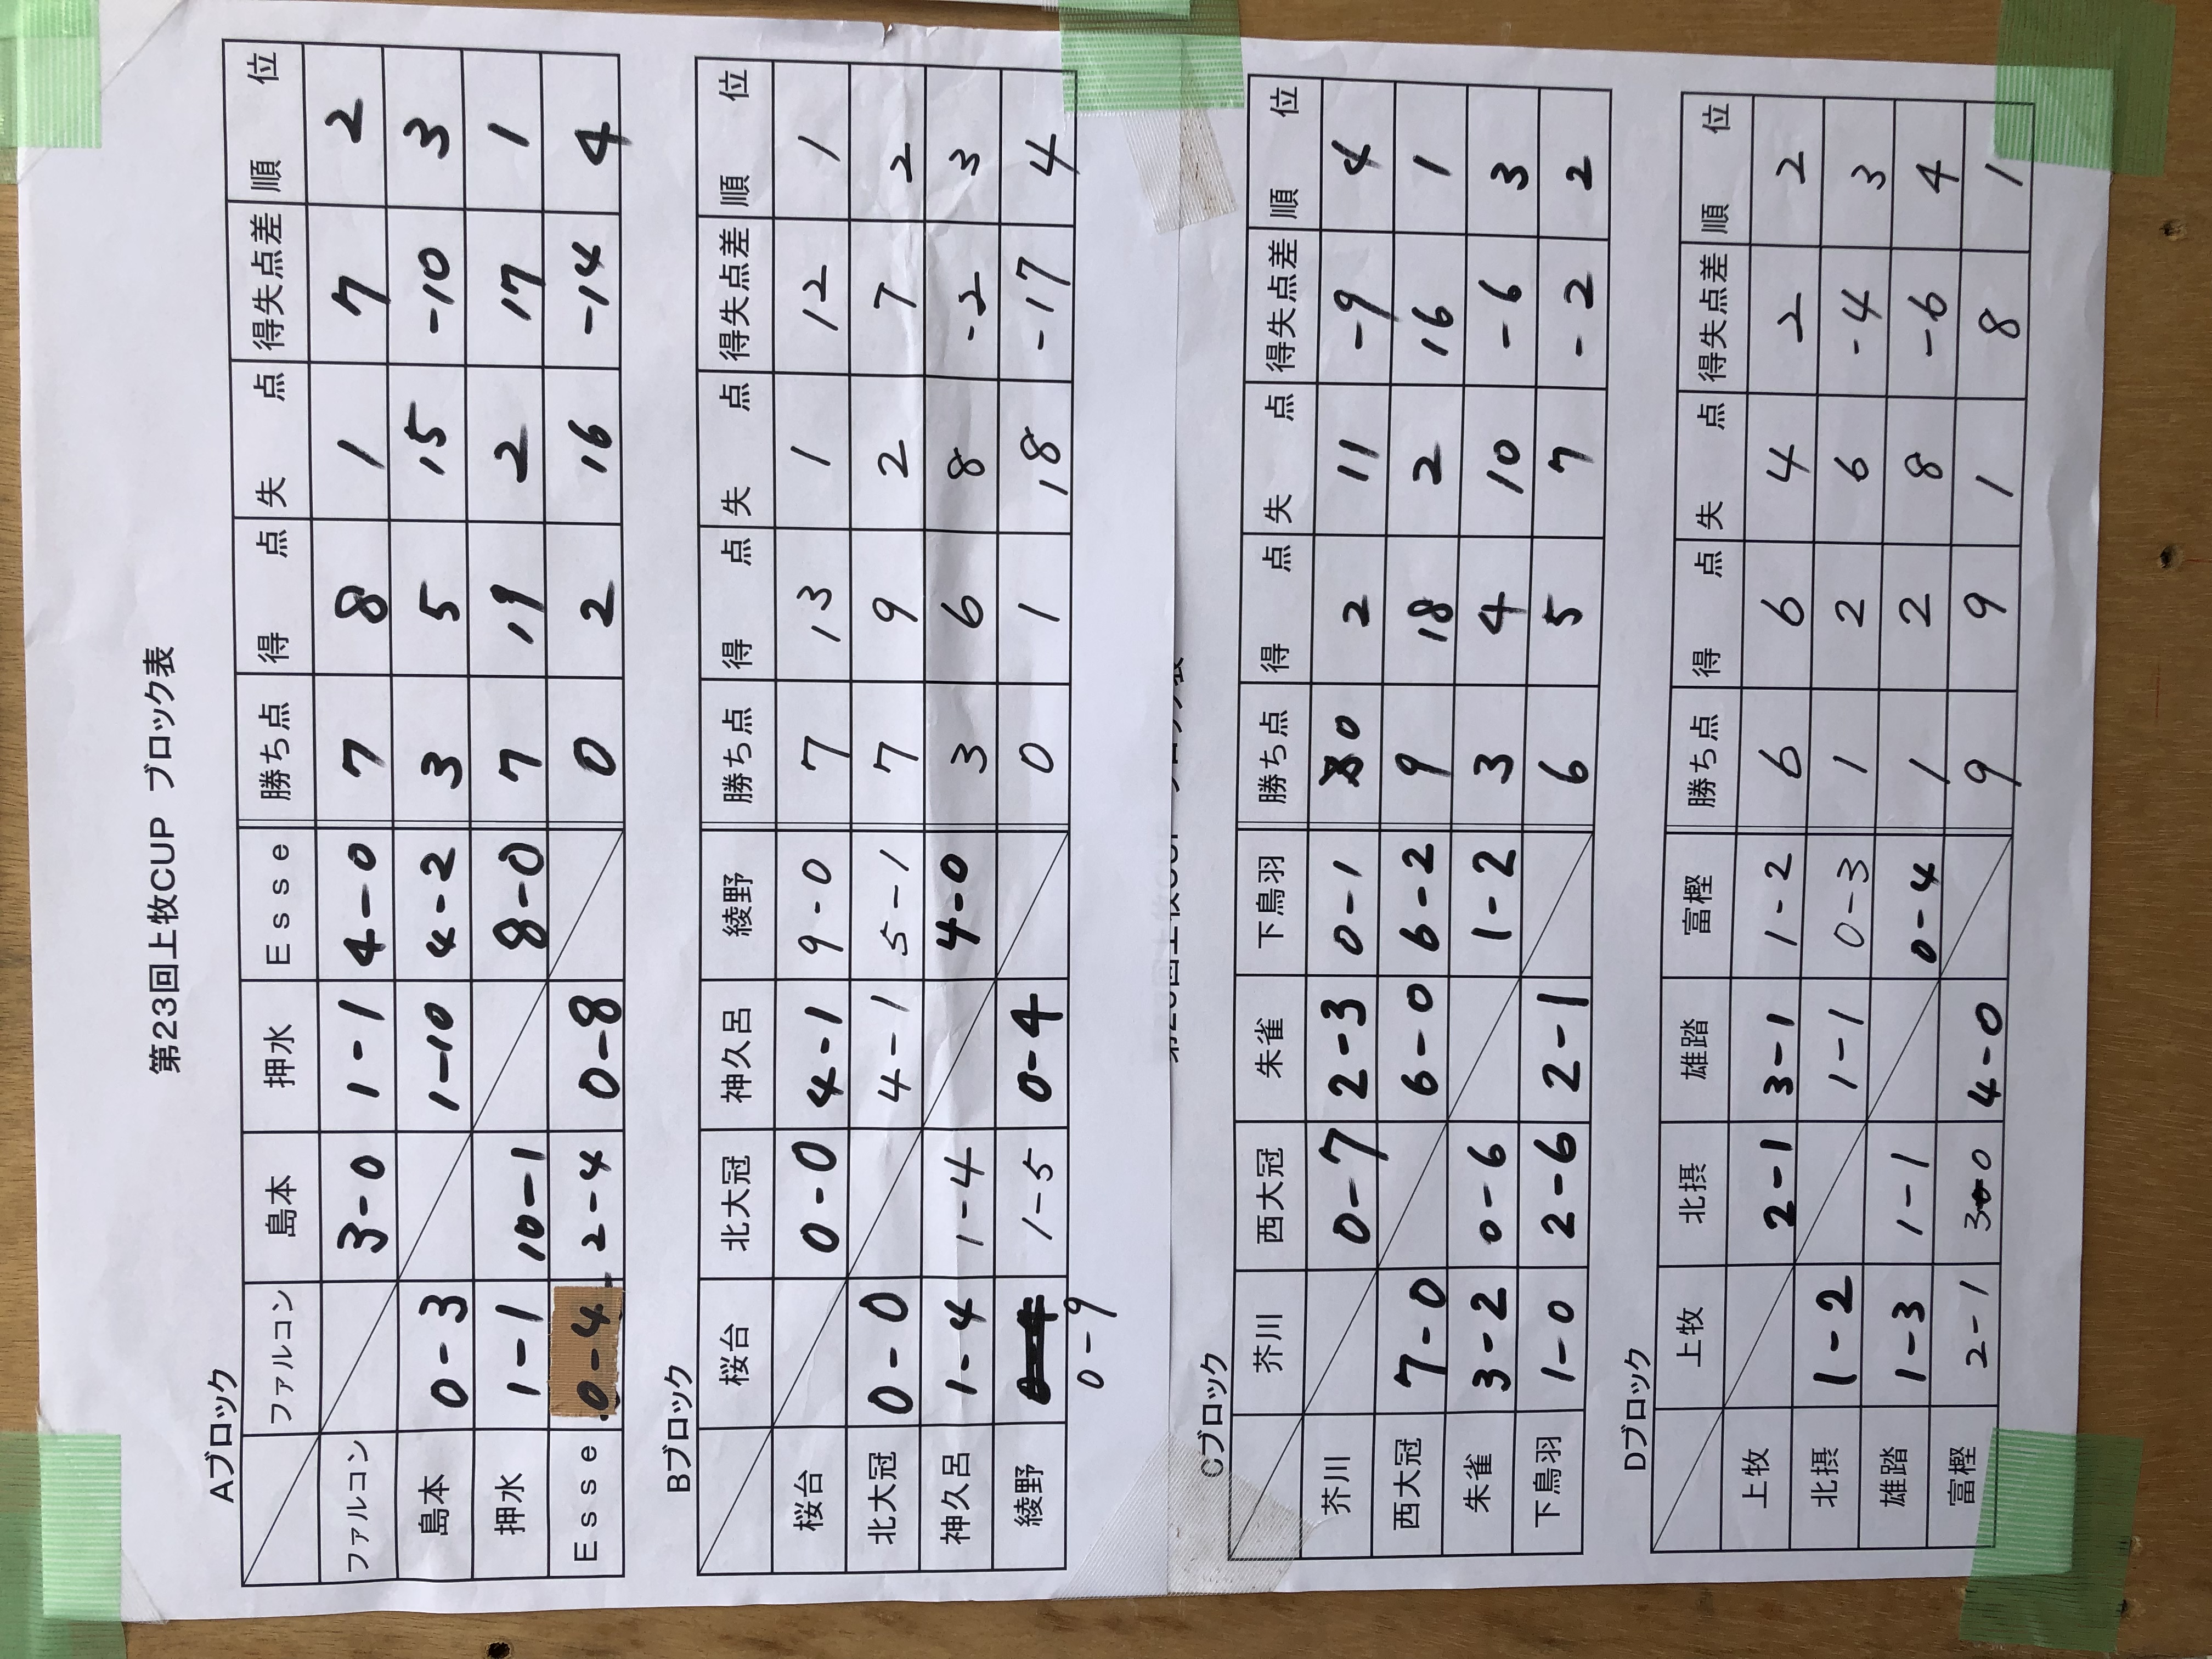 第23回上牧CUP ブロック表
Aブロック
ファルコン 島本 押水 Ｅｓｓｅ 勝ち点 得点 失点 得失点差 順位
ファルコン 3-0 1-1 4-0 7 8 1 7 2
島本 0-3 1-10 4-2 3 5 15 -10 3
押水 1-1 10-1 8-0 7 19 2 17 1
Ｅｓｓｅ 0-4 2-4 0-8 0 2 16 -14 4
Bブロック
桜台 北大冠 神久呂 綾野 勝ち点 得点 失点 得失点差 順位
桜台 0-0 4-1 9-0 7 13 1 12 1
北大冠 0-0 4-1 5-1 7 9 2 7 2
神久呂 1-4 1-4 4-0 3 6 8 -2 3
綾野 1-5 0-4 0 1 18 -17 4
0-9
Cブロック
芥川 西大冠 朱雀 下鳥羽 勝ち点 得点 失点 得失点差 順位
芥川 0-7 2-3 0-1 0 2 11 -9 4
西大冠 7-0 6-0 6-2 9 18 2 16 1
朱雀 3-2 0-6 1-2 3 4 10 -6 3
下鳥羽 1-0 2-6 2-1 6 5 7 -2 2
Dブロック
上牧 北摂 雄踏 富樫 勝ち点 得点 失点 得失点差 順位
上牧 2-1 3-1 1-2 6 6 4 2 2
北摂 1-2 1-1 0-3 1 2 6 -4 3
雄踏 1-3 1-1 0-4 1 2 8 -6 4
富樫 2-1 3-0 4-0 9 9 1 8 1